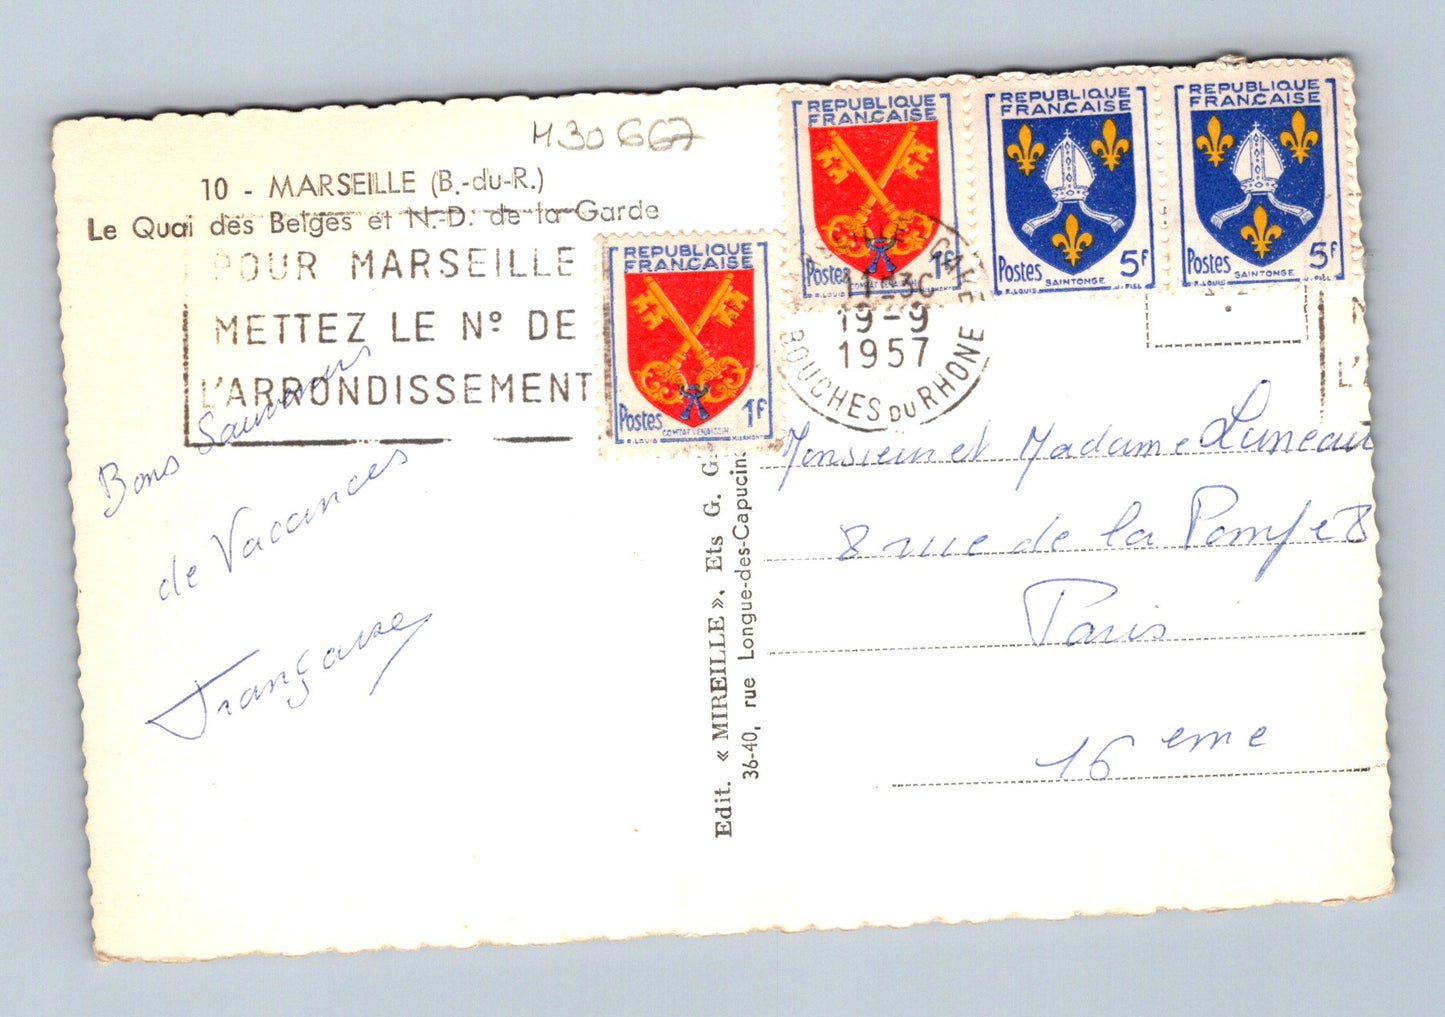 M30667
10 - MARSEILLE (B.-du-R.)
Le Quai des Belges et N.-D. de la Garde
POUR MARSEILLE
METTEZ LE Nº DE
L'ARRONDISSEMENT
REPUBLIQUE
FRANÇAISE
Postes 1F
COMTAT VENAISSIN
R. LOUIS
REPUBLIQUE
FRANÇAISE
Postes 1F
COMTAT VENAISSIN
R. LOUIS
REPUBLIQUE
FRANÇAISE
Postes 5F
SAINTONGE
R. LOUIS J. PIEL
REPUBLIQUE
FRANÇAISE
Postes 5F
SAINTONGE
R. LOUIS J. PIEL
19-9
1957
BOUCHES DU RHONE
Bons Souvenirs
de Vacances
Françoise
Edit. « MIREILLE », Ets G.
36-40, rue Longue-des-Capucins
Monsieur et Madame Luneau
8 rue de la Pompe
Paris
16 eme